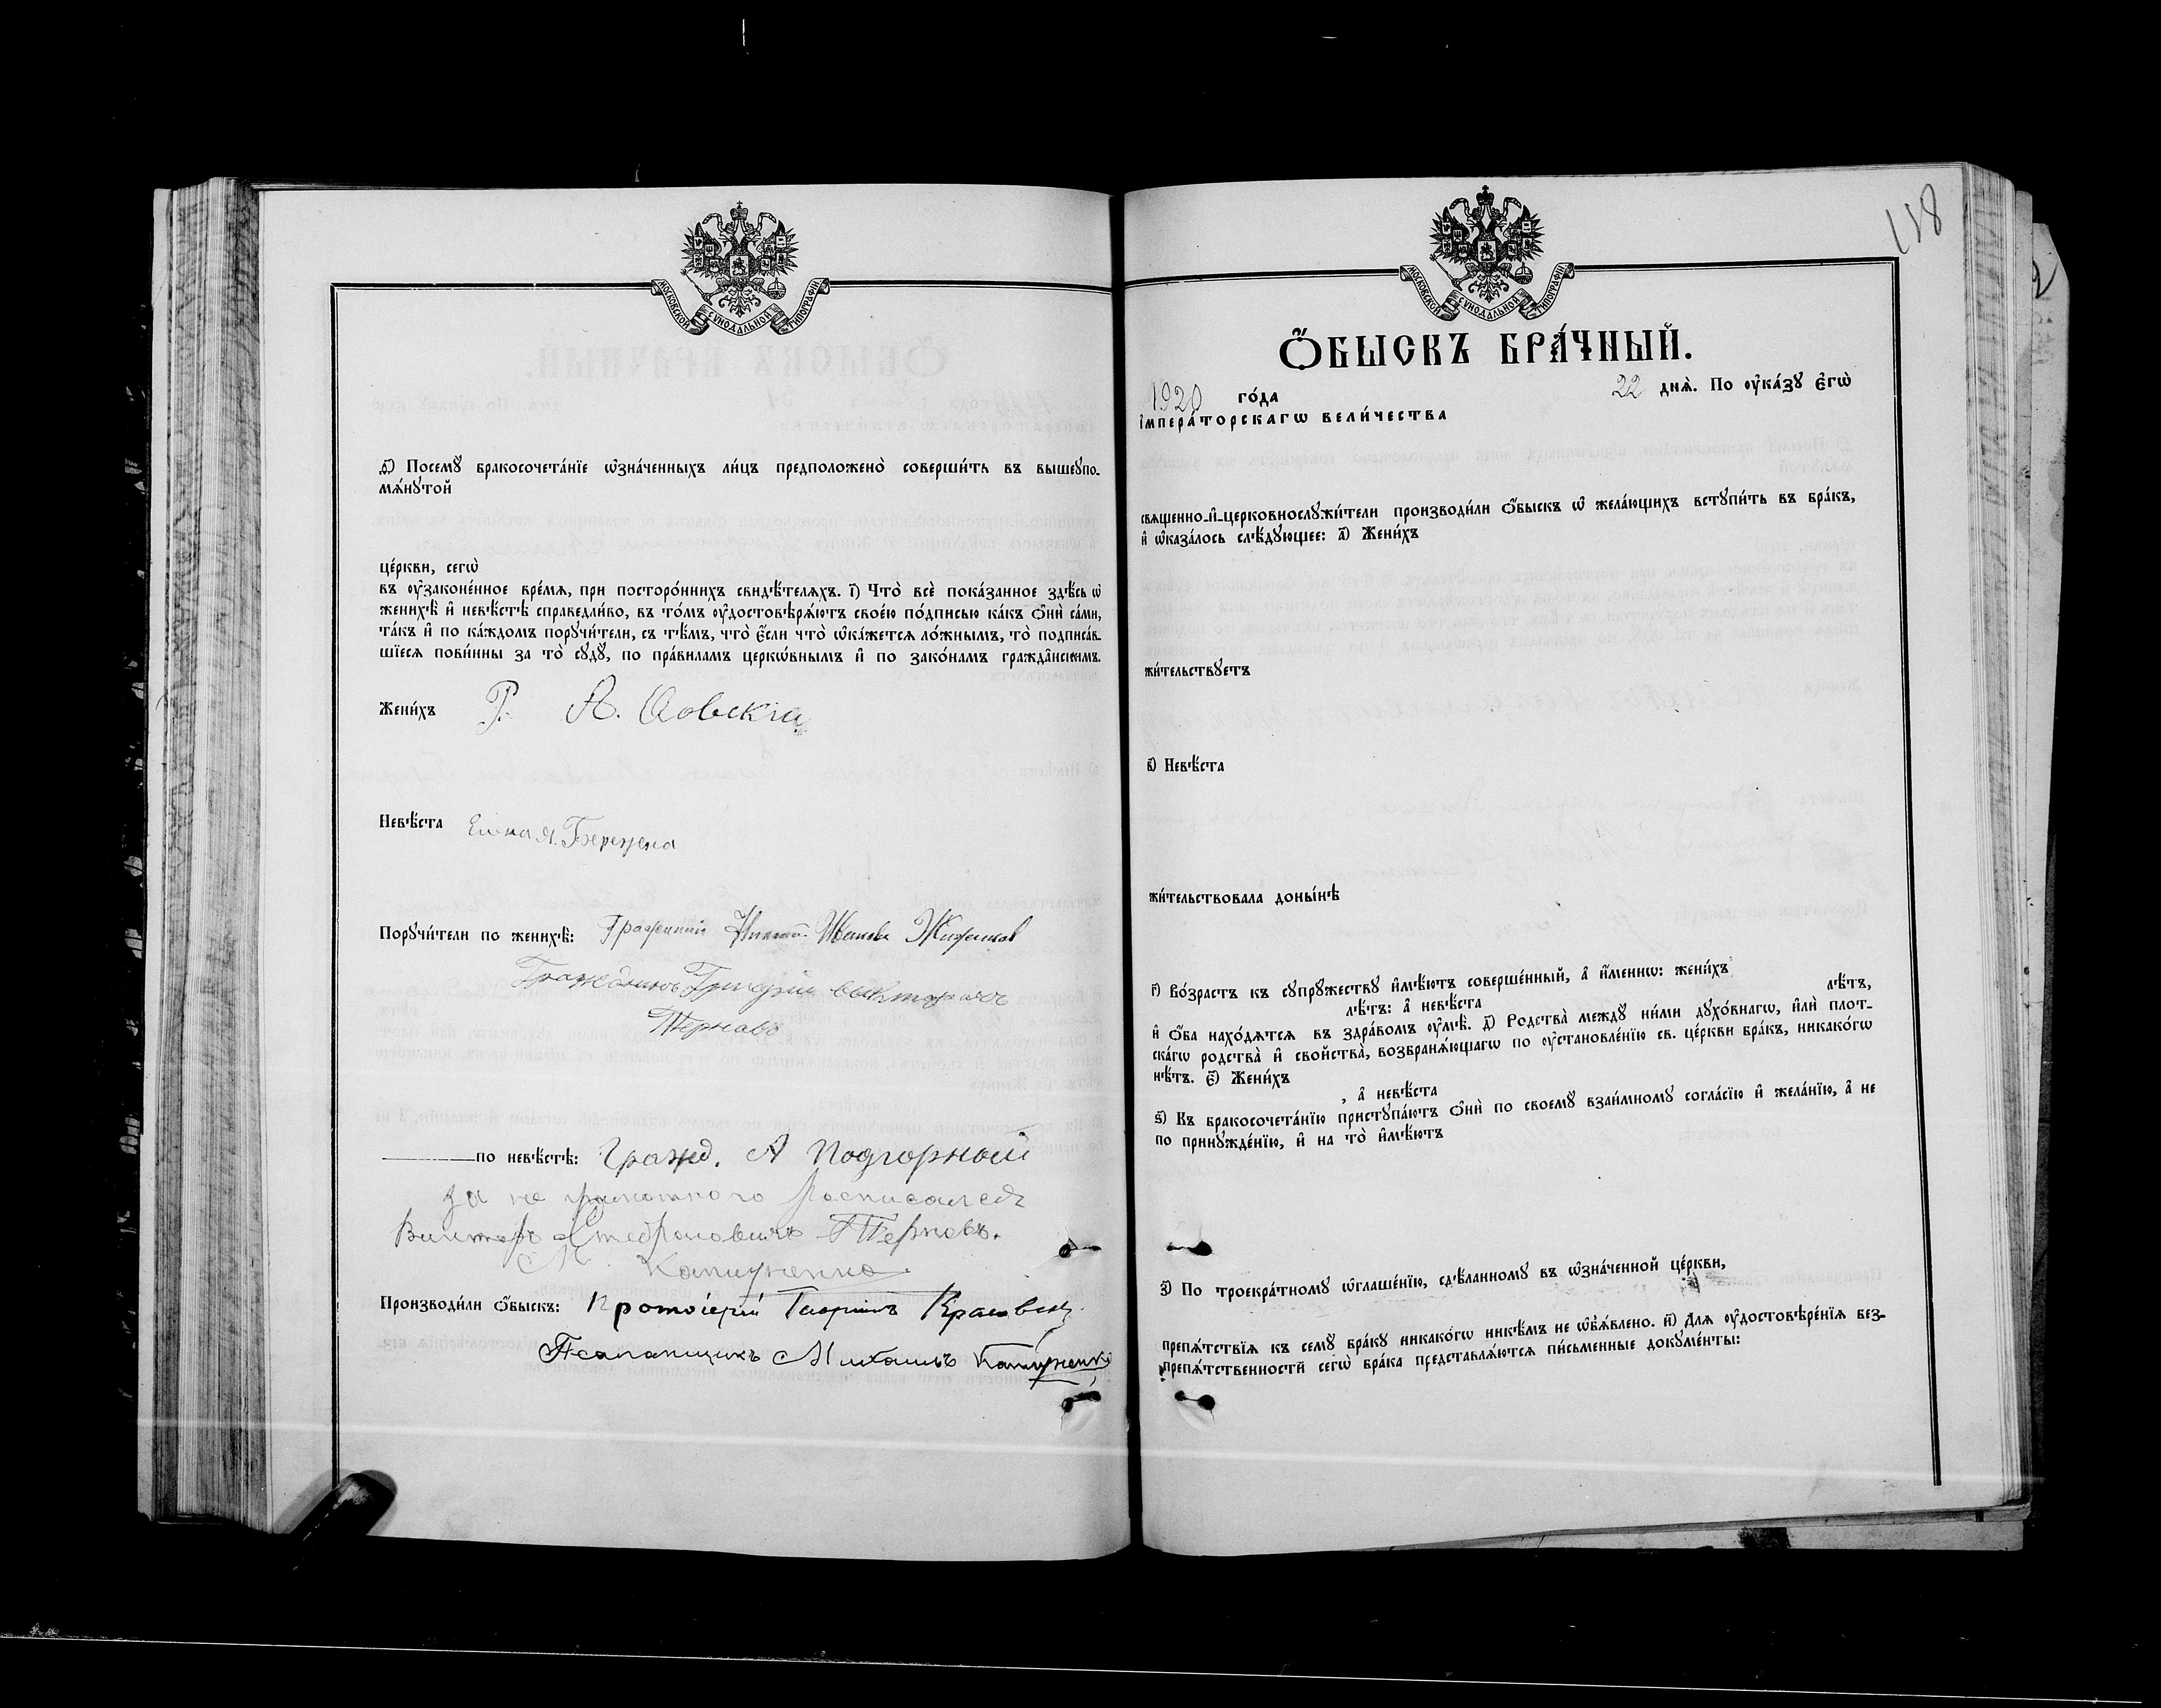 МОСКОВСКОЙ СѴНОДАЛЬНОЙ ТИПОГРАФІИ
д҃) Посемꙋ бракосочета́нїе ѡ҆зна́ченныхъ ли́цъ предположено̀ соверши́ть въ вышеꙋпо-
мѧ́нꙋтой
це́ркви, сегѡ̀
въ ᲂу҆законе́нное вре́мѧ, при посторо́ннихъ свидѣ́телѧхъ. і҃) Что̀ всѐ пока́занное здѣ́сь ѡ҆
женихѣ̀ и҆ невѣ́стѣ справедли́во, въ то́мъ ᲂу҆достовѣрѧ́ютъ свое́ю по́дписью ка́къ ѻ҆нѝ са́ми,
та́къ и҆ по ка́ждомъ порꙋчи́тели, съ тѣ́мъ, что̀ є҆́сли что̀ ѡ҆ка́жетсѧ ло́жнымъ, то̀ подписа́в-
шїесѧ пови́нны за то̀ сꙋдꙋ̀, по пра́виламъ церкѡ́внымъ и҆ по зако́намъ гражда̂нскимъ.
Жени́хъ Р. Я.
Невѣ́ста Я. Бережена
Порꙋчи́тели по женихѣ̀: Иванов
Гражданинъ Григорій Викторович
Терновъ
по невѣ́стѣ: Гражд. А Подгорный
за не грамотного Росписался
Викторъ Стефановичъ Терновъ.
М.
Производи́ли ѻ҆́быскъ: Протоіерей Георгій
Псаломщикъ Михаилъ
МОСКОВСКОЙ СѴНОДАЛЬНОЙ ТИПОГРАФІИ
118
Ѻ҆́БЫСКЪ БРА́ЧНЫЙ.
1920 го́да 22 днѧ̀. По ᲂу҆ка́зꙋ є҆гѡ̀
і҆мпера́торскагѡ вели́чества
свѧщенно-и҆-церковнослꙋжи́тели производи́ли ѻ҆́быскъ ѡ҆ жела́ющихъ встꙋпи́ть въ бра́къ,
и҆ ѡ҆каза́лось слѣ́дꙋющее: а҃) Жени́хъ
жи́тельствꙋетъ
в҃) Невѣ́ста
жи́тельствовала доны́нѣ
г҃) Во́зрастъ къ сꙋпрꙋ́жествꙋ и҆мѣ́ютъ соверше́нный, а҆ и҆́меннѡ: жени́хъ лѣ́тъ,
лѣ́тъ: а҆ невѣ́ста
и҆ ѻ҆́ба нахо́дѧтсѧ въ здра́вомъ ᲂу҆мѣ̀. д҃) Родства̀ междꙋ̀ ни́ми дꙋхо́внагѡ, и҆лѝ плот-
ска́гѡ родства̀ и҆ сво́йства̀, возбранѧ́ющагѡ по ᲂу҆становле́нїю св. це́ркви бра́къ, никако́гѡ
нѣ́тъ. є҃) Жени́хъ
, а҆ невѣ́ста
ѕ҃) Къ бракосочета́нїю пристꙋпа́ютъ ѻ҆нѝ по своемꙋ̀ взаи́мномꙋ согла́сїю и҆ жела́нїю, а҆ не
по принꙋжде́нїю, и҆ на то̀ и҆мѣ́ютъ
з҃) По троекра́тномꙋ ѡ҆глаше́нїю, сдѣ́ланномꙋ въ ѡ҆зна́ченной це́ркви,
препѧ́тствїѧ къ семꙋ̀ бра́кꙋ никако́гѡ никѣ́мъ не ѡ҆б̾ѧ́влено. и҃) Длѧ ᲂу҆достовѣре́нїѧ без-
препѧ́тственности сегѡ̀ бра́ка представлѧ́ютсѧ пи́сьменные докꙋме́нты: